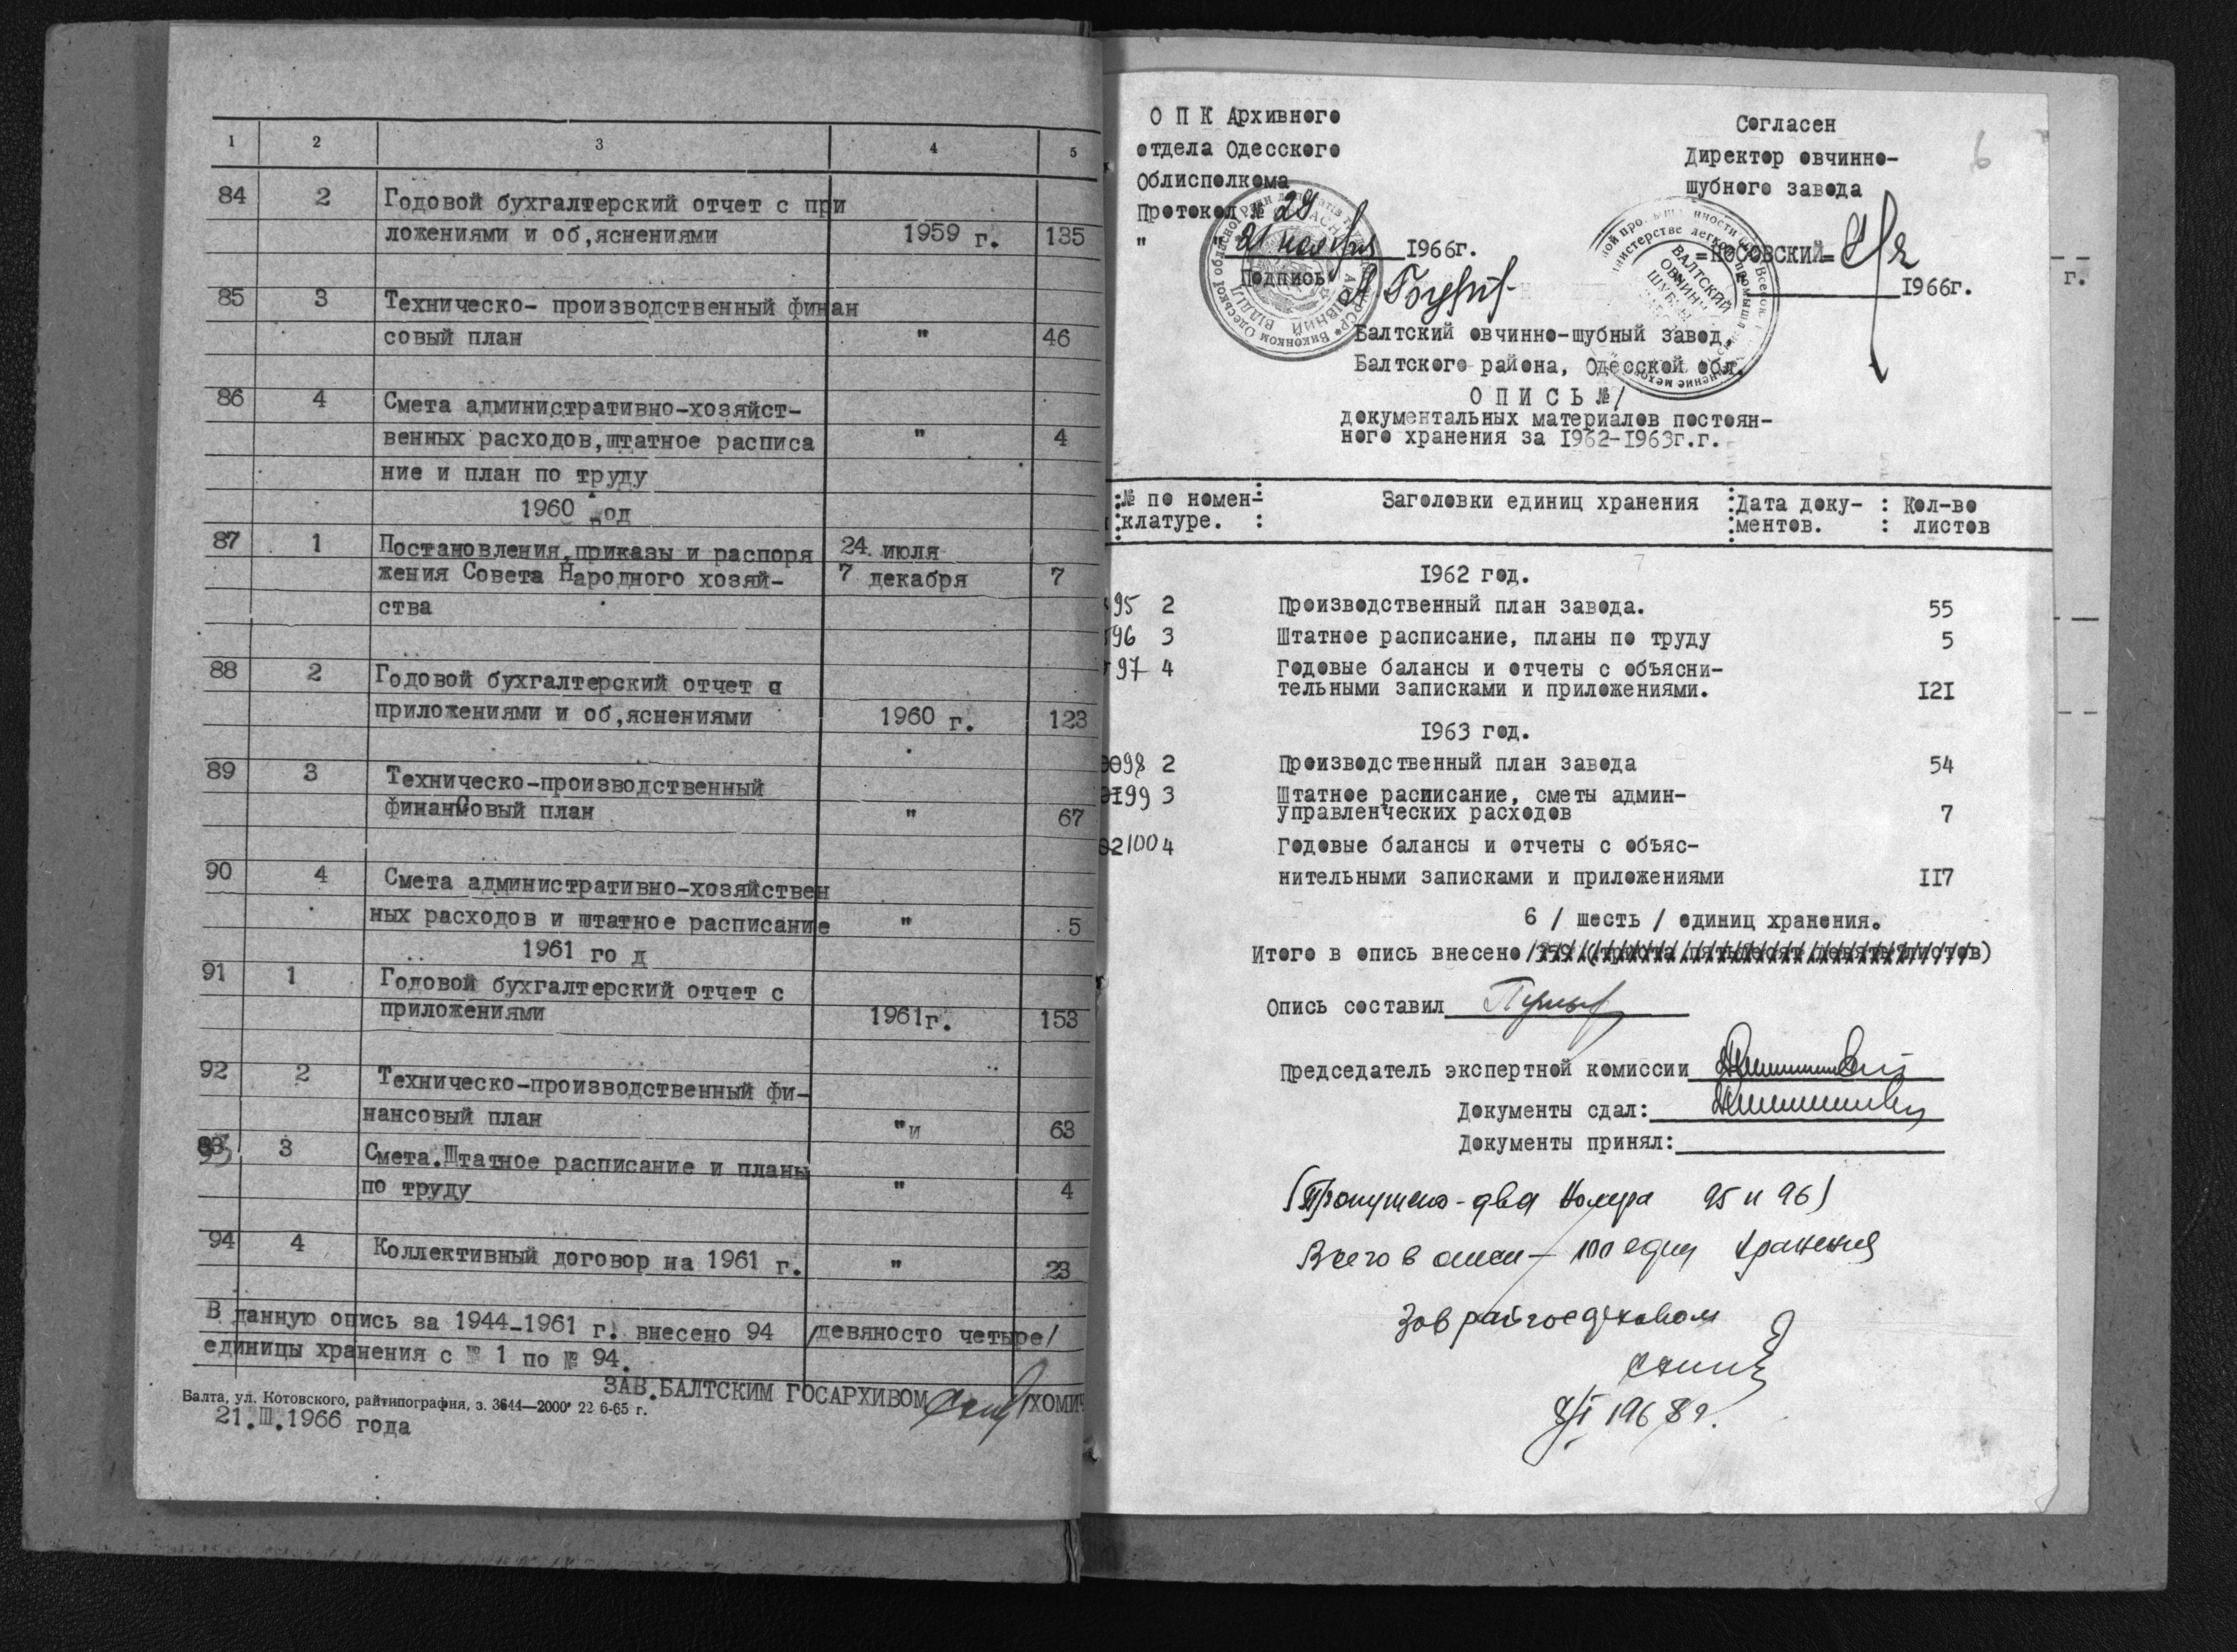 1 2 3 4 5
84 2 Годовой бухгалтерский отчет с при
ложениями и об,яснениями 1959 г. 135
85 3 Техническо- производственный финан
совый план " 46
86 4 Смета административно-хозяйст-
венных расходов,штатное расписа " 4
ние и план по труду
1960 год
87 1 Постановления,приказы и распоря 24 июля
жения Совета Народного хозяй- 7 декабря 7
ства
88 2 Годовой бухгалтерский отчет с
приложениями и об,яснениями 1960 г. 123
89 3 Техническо-производственный
финансовый план " 67
90 4 Смета административно-хозяйствен
ных расходов и штатное расписание " 5
1961 го д
91 1 Годовой бухгалтерский отчет с
приложениями 1961г. 153
92 2 Техническо-производственный фи-
нансовый план "и 63
93 3 Смета.Штатное расписание и планы
по труду " 4
94 4 Коллективный договор на 1961 г. " 23
В данную опись за 1944-1961 г. внесено 94 /девяносто четыре/
единицы хранения с № 1 по № 94.
ЗАВ.БАЛТСКИМ ГОСАРХИВОМ /ХОМИЧ
Балта, ул. Котовского, райтипография, з. 3644—2000 22 6-65 г.
21.III.1966 года
6
О П К Архивного
отдела Одесского
Облисполкома
Протокол № 29
" " 21 ноября 1966г.
Подпись
Согласен
Директор овчинно-
шубного завода
=НОСОВСКИЙ=
1966г.
г.
Балтский овчинно-шубный завод
Балтского района, Одесской обл.
О П И С Ь № 1
документальных материалов постоян-
ного хранения за 1962-1963г.г.
№ по номен- Заголовки единиц хранения :Дата доку- : Кол-во
клатуре. : :ментов. : листов
1962 год.
95 2 Производственный план завода. 55
96 3 Штатное расписание, планы по труду 5
97 4 Годовые балансы и отчеты с объясни-
тельными записками и приложениями. 121
1963 год.
98 2 Производственный план завода 54
99 3 Штатное расписание, сметы админ-
управленческих расходов 7
100 4 Годовые балансы и отчеты с объяс-
нительными записками и приложениями 117
6 / шесть / единиц хранения.
Итого в опись внесено 359 (триста пятьдесят девять листов)
Опись составил
Председатель экспертной комиссии
Документы сдал:
Документы принял:
(Пропущено - два номера 95 и 96)
Всего в описи — 100 един хранения
Зав райгосархивом
8/I 1968 г.